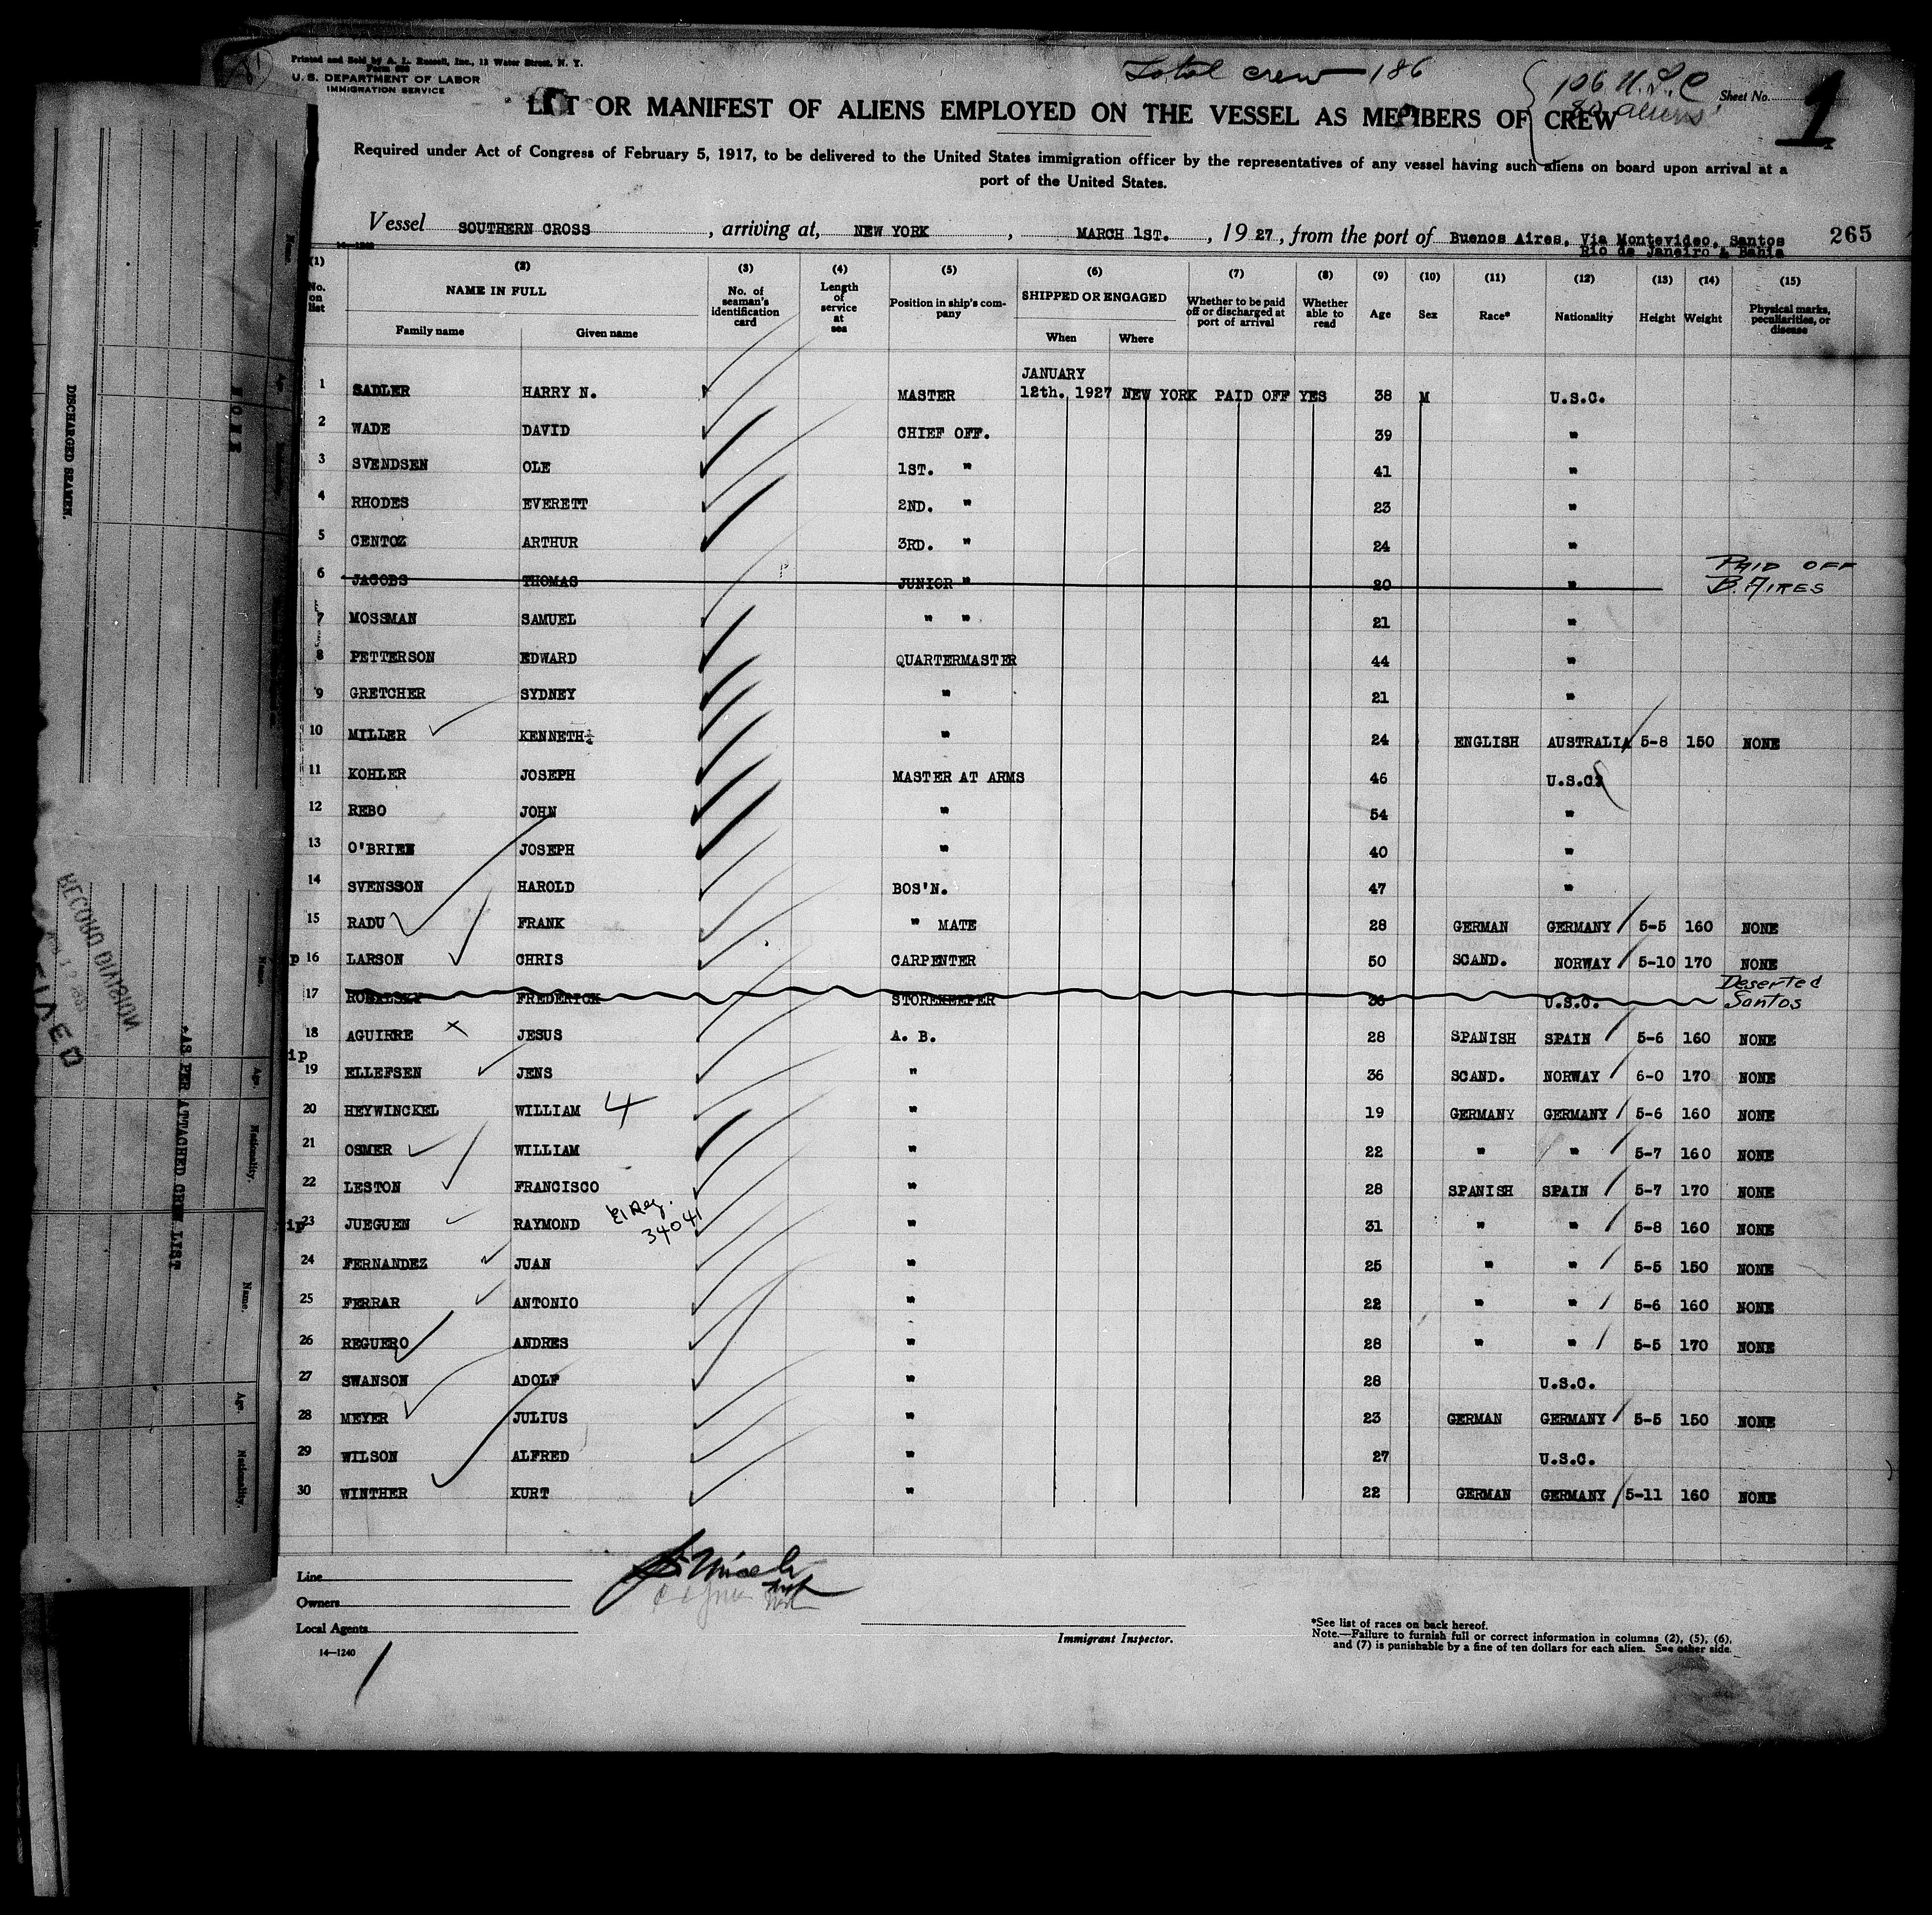 Printed and Sold by A. L. Russell, Inc., 12 Water Street, N. Y.
U. S. DEPARTMENT OF LABOR
IMMIGRATION SERVICE
Total crew - 186
106 U.S.C
80 aliens
Sheet No. 1
OR MANIFEST OF ALIENS EMPLOYED ON THE VESSEL AS MEMBERS OF CREW
Required under Act of Congress of February 5, 1917, to be delivered to the United States immigration officer by the representatives of any vessel having such aliens on board upon arrival at a
port of the United States.
Vessel SOUTHERN CROSS, arriving at, NEW YORK, MARCH 1ST., 1927, from the port of Buenos Aires, Via Montevideo, Santos
Rio de Janeiro & Bahia
265
(1) (2) (3) (4) (5) (6) (7) (8) (9) (10) (11) (12) (13) (14) (15)
No. on list NAME IN FULL No. of seaman's identification card Length of service at sea Position in ship's company SHIPPED OR ENGAGED Whether to be paid off or discharged at port of arrival Whether able to read Age Sex Race* Nationality Height Weight Physical marks, peculiarities, or disease
Family name Given name When Where
JANUARY
1 SADLER HARRY N. MASTER 12th. 1927 NEW YORK PAID OFF YES 38 M U.S.C.
2 WADE DAVID CHIEF OFF. 39 "
3 SVENDSEN OLE 1ST. " 41 "
4 RHODES EVERETT 2ND. " 23 "
5 CENTOZ ARTHUR 3RD. " 24 "
6 JACOBS THOMAS JUNIOR " 20 " PAID OFF B. AIRES
7 MOSSMAN SAMUEL " " 21 "
8 PETTERSON EDWARD QUARTERMASTER 44 "
9 GRETCHER SYDNEY " 21 "
10 MILLER KENNETH " 24 ENGLISH AUSTRALIA 5-8 150 NONE
11 KOHLER JOSEPH MASTER AT ARMS 46 U.S.C.
12 REBO JOHN " 54 "
13 O'BRIEN JOSEPH " 40 "
14 SVENSSON HAROLD BOS'N. 47 "
15 RADU FRANK " MATE 28 GERMAN GERMANY 5-5 160 NONE
p 16 LARSON CHRIS CARPENTER 50 SCAND. NORWAY 5-10 170 NONE
17 FREDERICK STOREKEEPER 36 U.S.C. Deserted Santos
18 AGUIRRE JESUS A. B. 28 SPANISH SPAIN 5-6 160 NONE
ip
19 ELLEFSEN JENS " 36 SCAND. NORWAY 6-0 170 NONE
20 HEYWINCKEL WILLIAM 4 " 19 GERMANY GERMANY 5-6 160 NONE
21 OSMER WILLIAM " 22 " " 5-7 160 NONE
22 LESTON FRANCISCO " 28 SPANISH SPAIN 5-7 170 NONE
ip 23 JUEGUEN RAYMOND 34041 " 31 " " 5-8 160 NONE
24 FERNANDEZ JUAN " 25 " " 5-5 150 NONE
25 FERRAR ANTONIO " 22 " " 5-6 160 NONE
26 REGUERO ANDRES " 28 " " 5-5 170 NONE
27 SWANSON ADOLF " 28 U.S.C.
28 MEYER JULIUS " 23 GERMAN GERMANY 5-5 150 NONE
29 WILSON ALFRED " 27 U.S.C.
30 WINTHER KURT " 22 GERMAN GERMANY 5-11 160 NONE
Line
Owners
Local Agents
14-1240
Immigrant Inspector.
*See list of races on back hereof.
Note.—Failure to furnish full or correct information in columns (2), (5), (6),
and (7) is punishable by a fine of ten dollars for each alien. See other side.
DISCHARGED SEAMEN.
NONE
RECORD DIVISION
*AS PER ATTACHED CREW LIST
Name. Age. Nationality. Name. Age. Nationality.